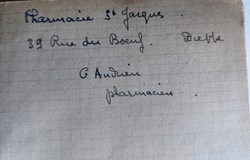 Pharmacie St Jacques
39 Rue du Boeuf. Dieppe
C. Andrieu
pharmacien.